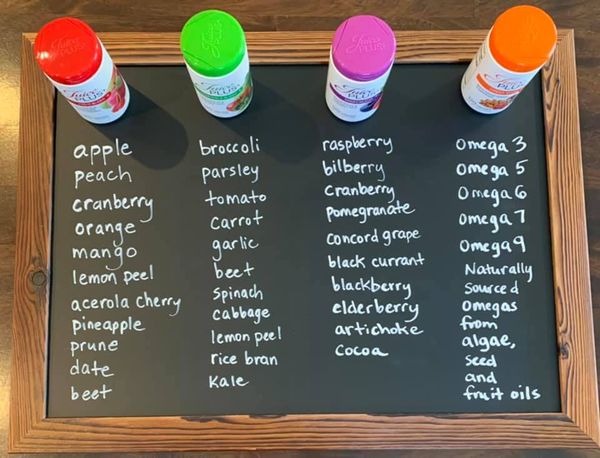 Juice PLUS+
Juice PLUS+
Juice PLUS+
Juice PLUS+
apple
peach
cranberry
orange
mango
lemon peel
acerola cherry
pineapple
prune
date
beet
broccoli
parsley
tomato
carrot
garlic
beet
spinach
cabbage
lemon peel
rice bran
Kale
raspberry
bilberry
Cranberry
pomegranate
concord grape
black currant
blackberry
elderberry
artichoke
cocoa
Omega 3
Omega 5
Omega 6
Omega 7
Omega 9
Naturally
sourced
Omegas
from
algae,
seed
and
fruit oils